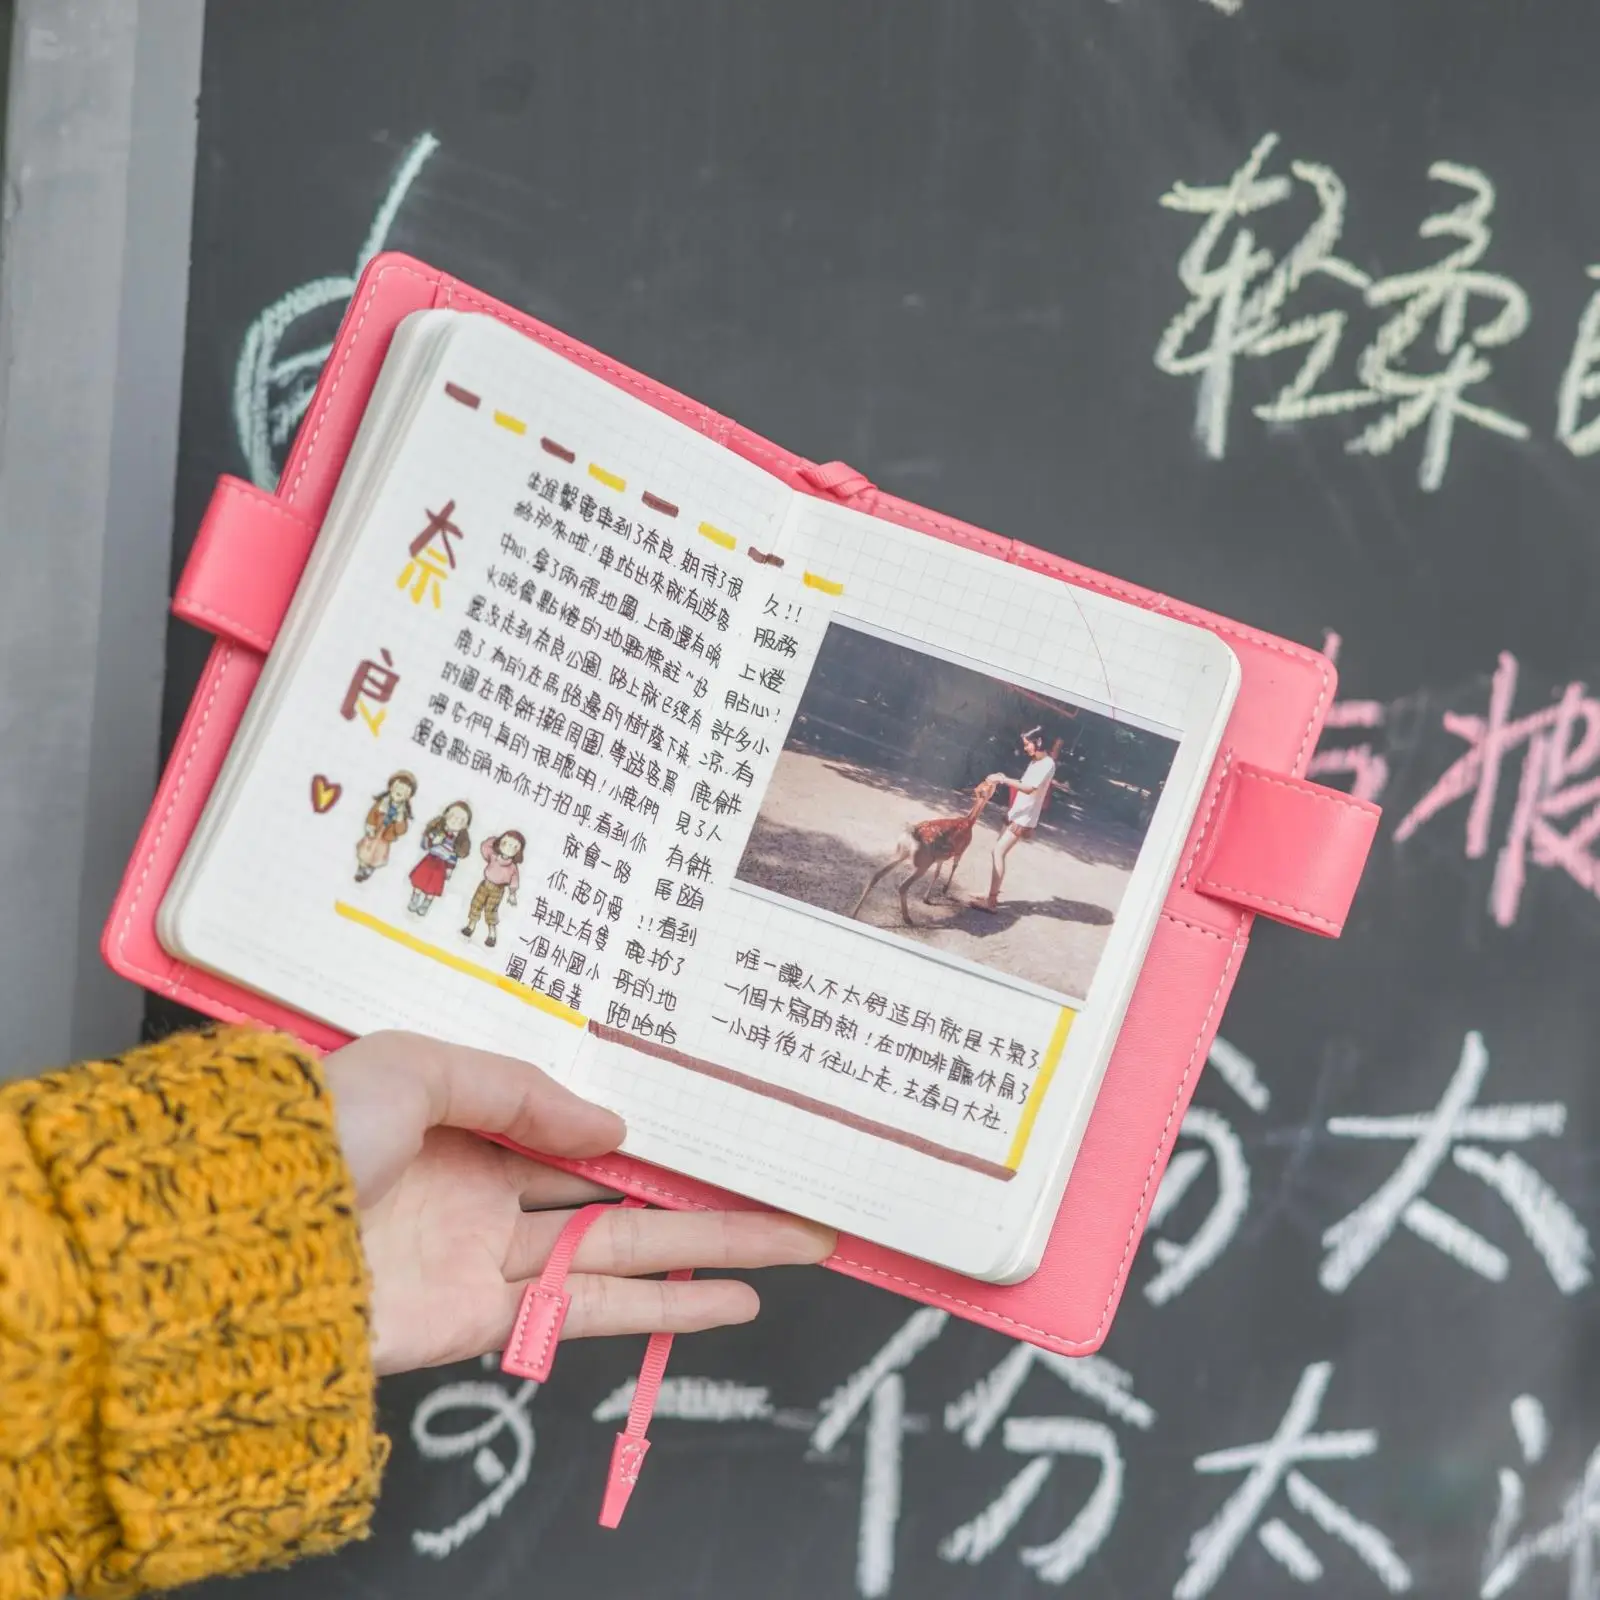 輕柔
奈良
坐進擊電車到了奈良.期待了很久!!
終於來啦!車站出來就有遊客服務
中心.拿了兩張地圖.上面還有晚上燈
火晚會點燈的地點標註~好貼心!
還沒走到奈良公園.路上就已經有許多小
鹿了.有的在馬路邊的樹蔭下乘涼.有
的圍在鹿餅攤周圍.等遊客買鹿餅
喂它們.真的很聰明!小鹿們見了人
還會點頭和你打招呼.看到你有餅.
就會一路尾隨
你.超可愛!!看到
草坪上有隻鹿抢了
一個外國小哥的地
圖.在追著跑哈哈
唯一讓人不太舒适的就是天氣了.
一個大寫的熱!在咖啡廳休息了
一小時後才往山上走.去春日大社.
份太
一份太